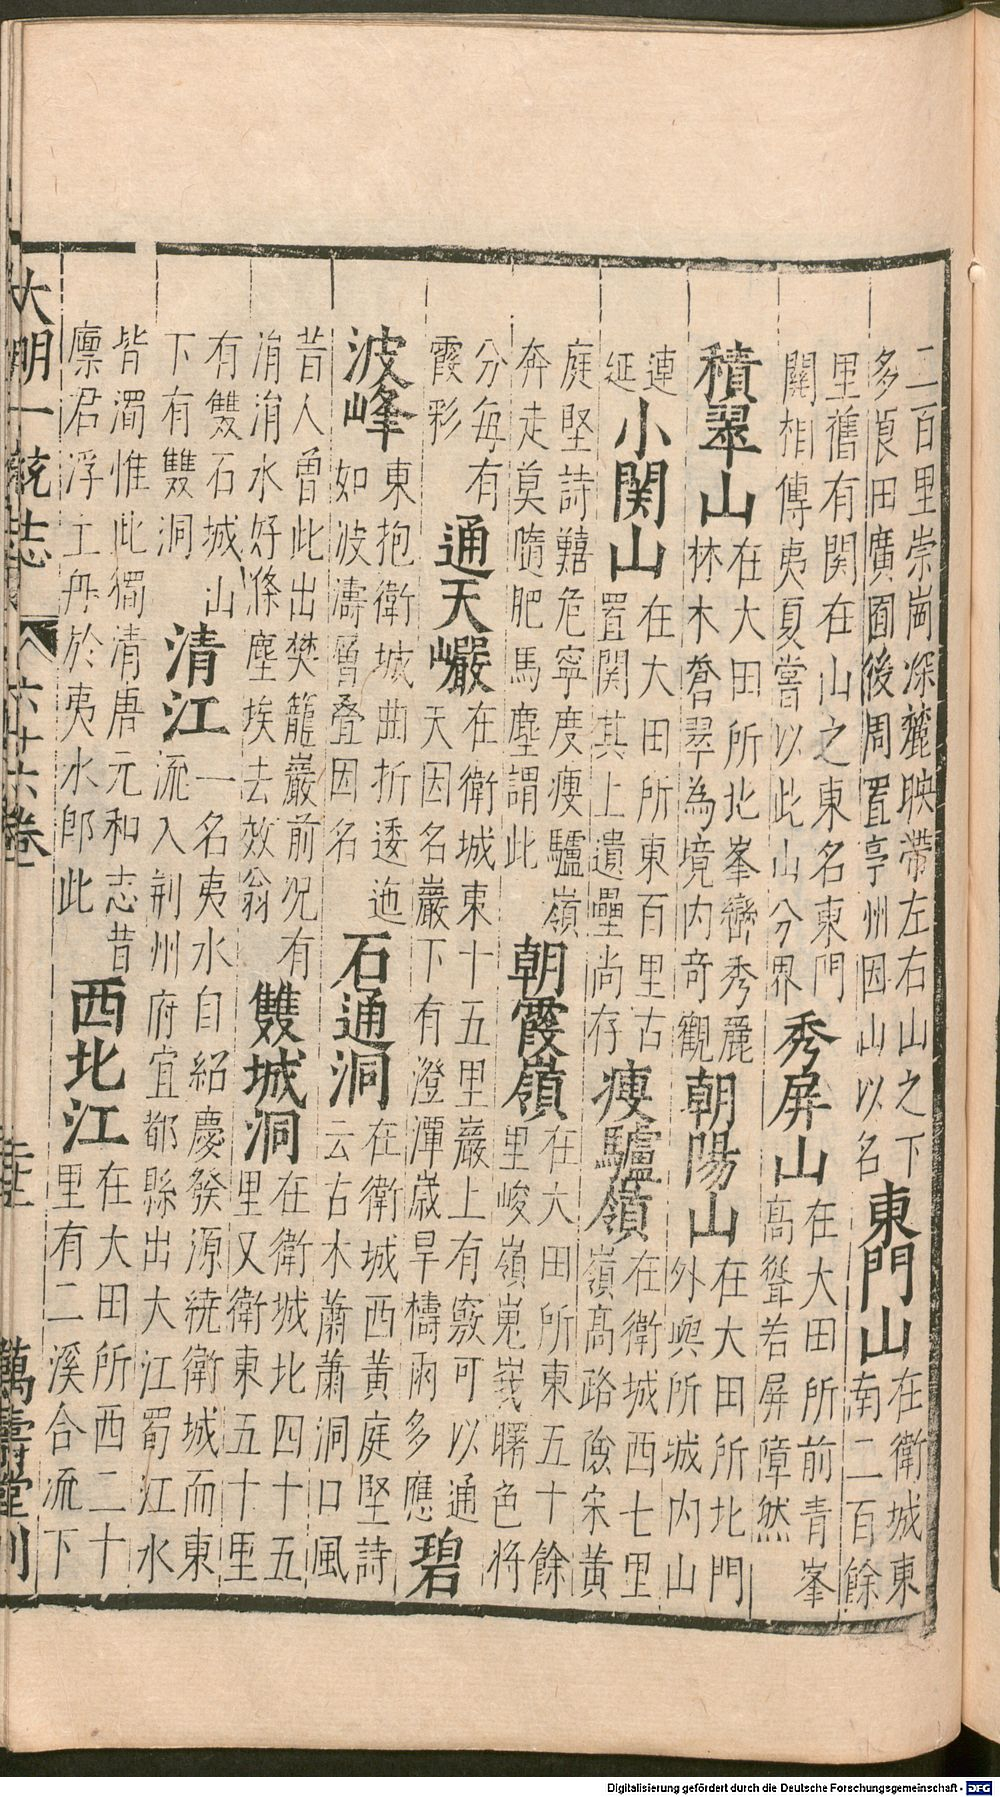 二百里崇崗深麓映帶左右山之下
多良田廣囿後周置亭州因山以名
東門山
在衛城東
南二百餘
里舊有関在山之東名東門
關相傳夷夏嘗以此山分界
秀屏山
在大田所前青峯
高聳若屏障然
積翠山
在大田所北峯巒秀麗
林木蒼翠為境内竒觀
朝陽山
在大田所北門
外與所城内山
連
延
小関山
在大田所東百里古
置関其上遺壘尚存
瘦驢嶺
在衛城西七里
嶺高路險宋黃
庭堅詩囏危寧度瘦驢嶺
奔走莫隨肥馬塵謂此
朝霞嶺
在大田所東五十餘
里峻嶺嵬峩曙色將
分每有
霞彩
通天巖
在衛城東十五里巖上有竅可以通
天因名巖下有澄潭歲旱禱雨多應
碧
波峰
東抱衛城曲折逶迤
如波濤層叠因名
石通洞
在衛城西黃庭堅詩
云古木蕭蕭洞口風
昔人曽此出樊籠巖前况有
涓涓水好滌塵埃去效翁
雙城洞
在衛城北四十五
里又衛東五十里
有雙石城山
下有雙洞
清江
一名夷水自紹慶發源繞衛城而東
流入荆州府宜都縣出大江蜀江水
皆濁惟此獨清唐元和志昔
廪君浮土舟於夷水即此
西北江
在大田所西二十
里有二溪合流下
大明一統志
六十六卷
萬壽堂刊
Digitalisierung gefördert durch die Deutsche Forschungsgemeinschaft - DFG